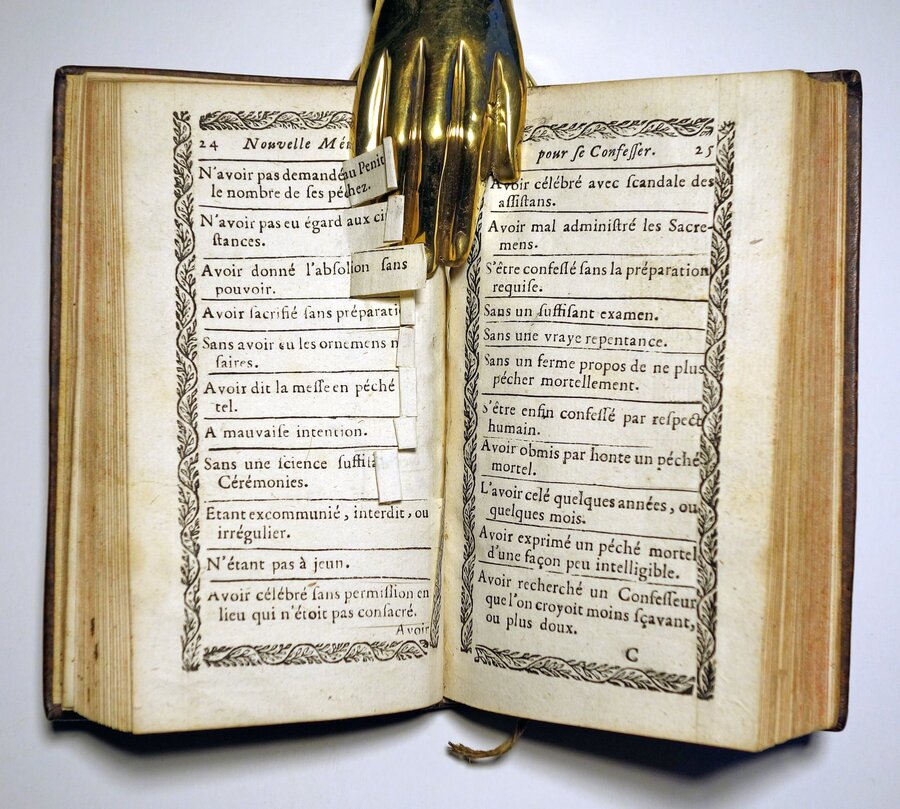 24 Nouvelle
N'avoir pas demandé au Penit
le nombre de ſes péchez.
N'avoir pas eu égard aux ci
ſtances.
Avoir donné l'abſolion ſans
pouvoir.
Avoir ſacrifié ſans préparati
Sans avoir eu les ornemens n
ſaires.
Avoir dit la meſſe en péché
tel.
A mauvaiſe intention.
Sans une ſcience ſuffiſa
Cérémonies.
Etant excommunié, interdit, ou
irrégulier.
N'étant pas à jeun.
Avoir célébré ſans permiſſion en
lieu qui n'étoit pas conſacré.
Avoir
pour ſe Confeſſer. 25
Avoir célébré avec ſcandale des
aſſiſtans.
Avoir mal adminiſtré les Sacre-
mens.
S'être confeſſé ſans la préparation
requiſe.
Sans un ſuffiſant examen.
Sans une vraye repentance.
Sans un ferme propos de ne plus
pécher mortellement.
S'être enfin confeſſé par reſpect
humain.
Avoir obmis par honte un péché
mortel.
L'avoir celé quelques années, ou
quelques mois.
Avoir exprimé un péché mortel
d'une façon peu intelligible.
Avoir recherché un Confeſſeur
que l'on croyoit moins ſçavant,
ou plus doux.
C